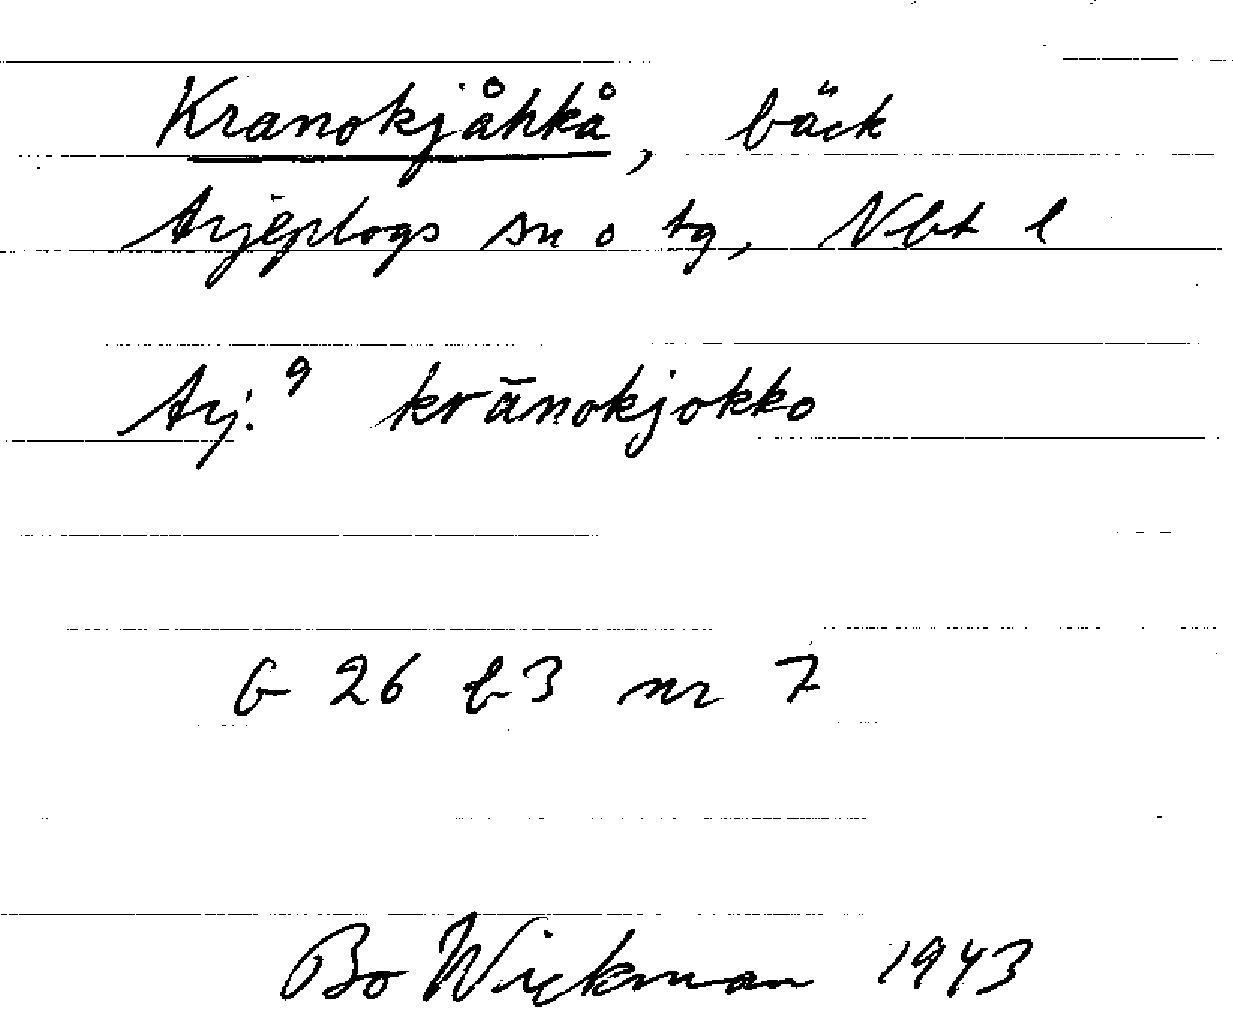 Kranokjåhkå, bäck
Arjeplogs sn o tg, Nbt l
Arj. 9 krānokjokko
G 26 b3 nr 7
Bo Wickman 1943